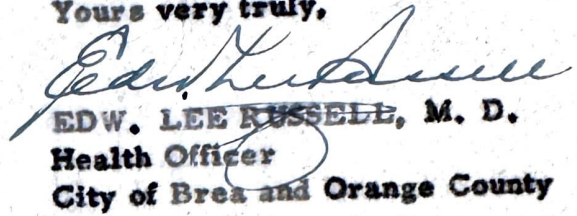 Yours very truly,
Edw. Lee Russell
EDW. LEE RUSSELL, M. D.
Health Officer
City of Brea and Orange County